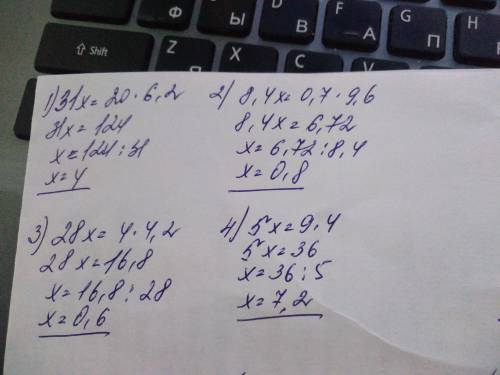 Shift
Ф
Ы
В
D
F
А
G
П
Н
Р
Я
Z
Ч
X
С
C
1) 31x = 20 · 6,2
31x = 124
x = 124 : 31
x = 4
2) 8,4x = 0,7 · 9,6
8,4x = 6,72
x = 6,72 : 8,4
x = 0,8
3) 28x = 4 · 4,2
28x = 16,8
x = 16,8 : 28
x = 0,6
4) 5x = 9 · 4
5x = 36
x = 36 : 5
x = 7,2